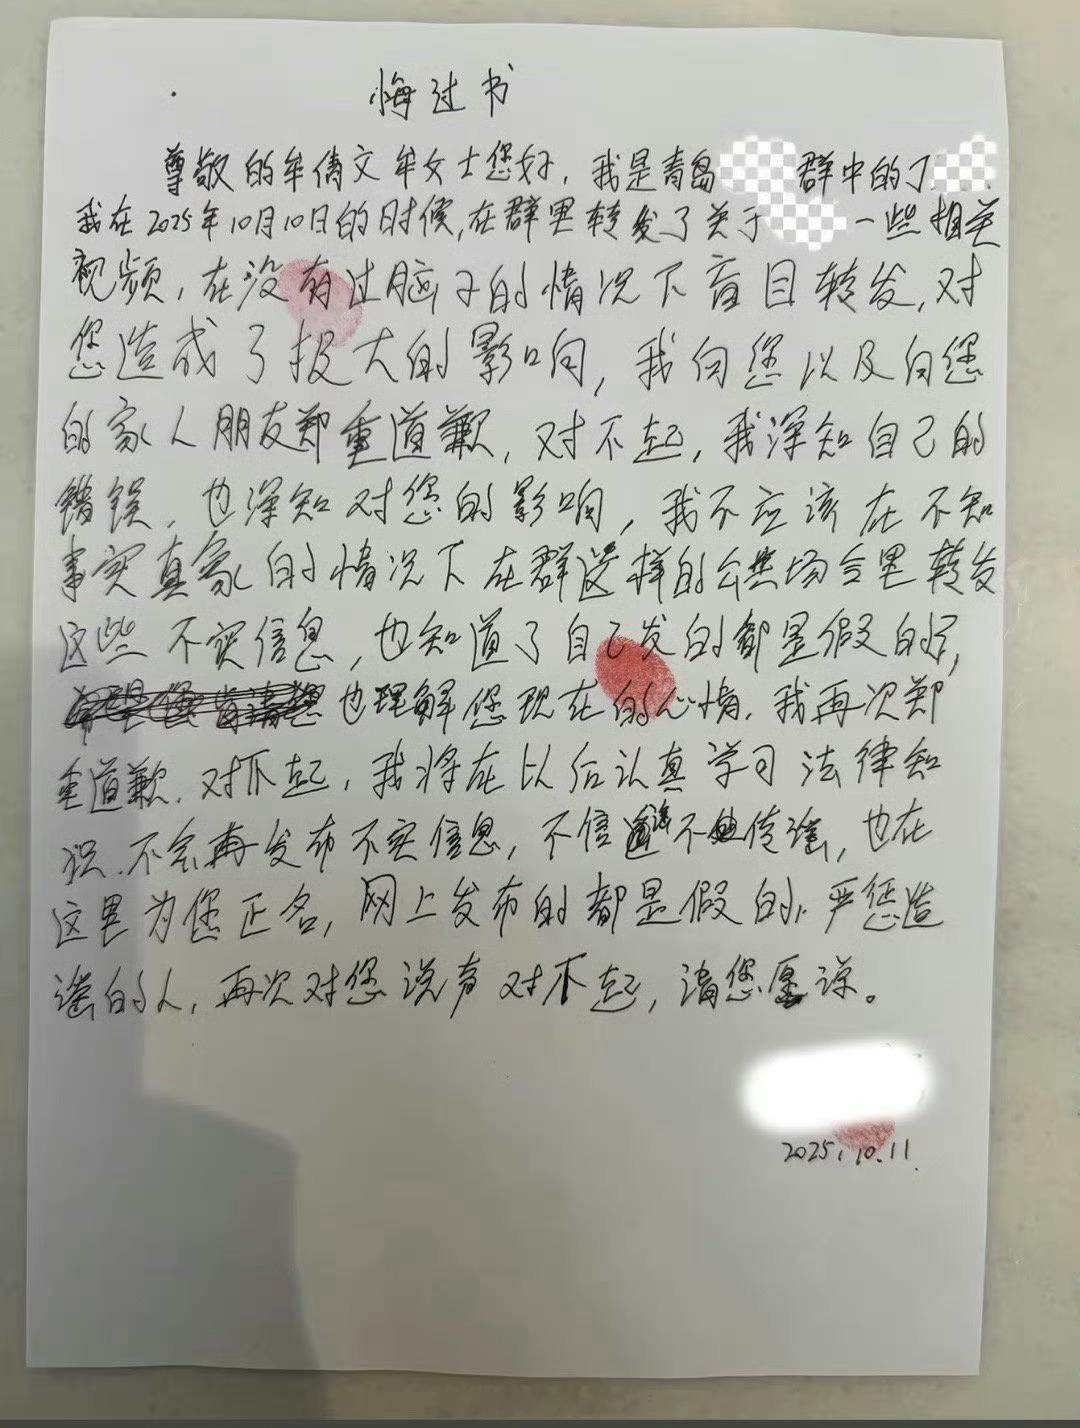 悔过书
尊敬的牟倩文牟女士您好，我是青岛 群中的丁
我在2025年10月10日的时候，在群里转发了关于 一些相关
视频，在没有过脑子的情况下盲目转发，对
您造成了极大的影响，我向您以及向您
的家人朋友郑重道歉，对不起，我深知自己的
错误，也深知对您的影响，我不应该在不知
事实真象的情况下在群这样的公共场合里转发
这些不实信息，也知道了自己发的都是假的，
也理解您现在的心情，我再次郑
重道歉，对不起，我将在以后认真学习法律知
识、不会再发布不实信息，不信谣不传谣，也在
这里为您正名，网上发布的都是假的，严惩造
谣的人，再次对您说声对不起，请您原谅。
2025.10.11